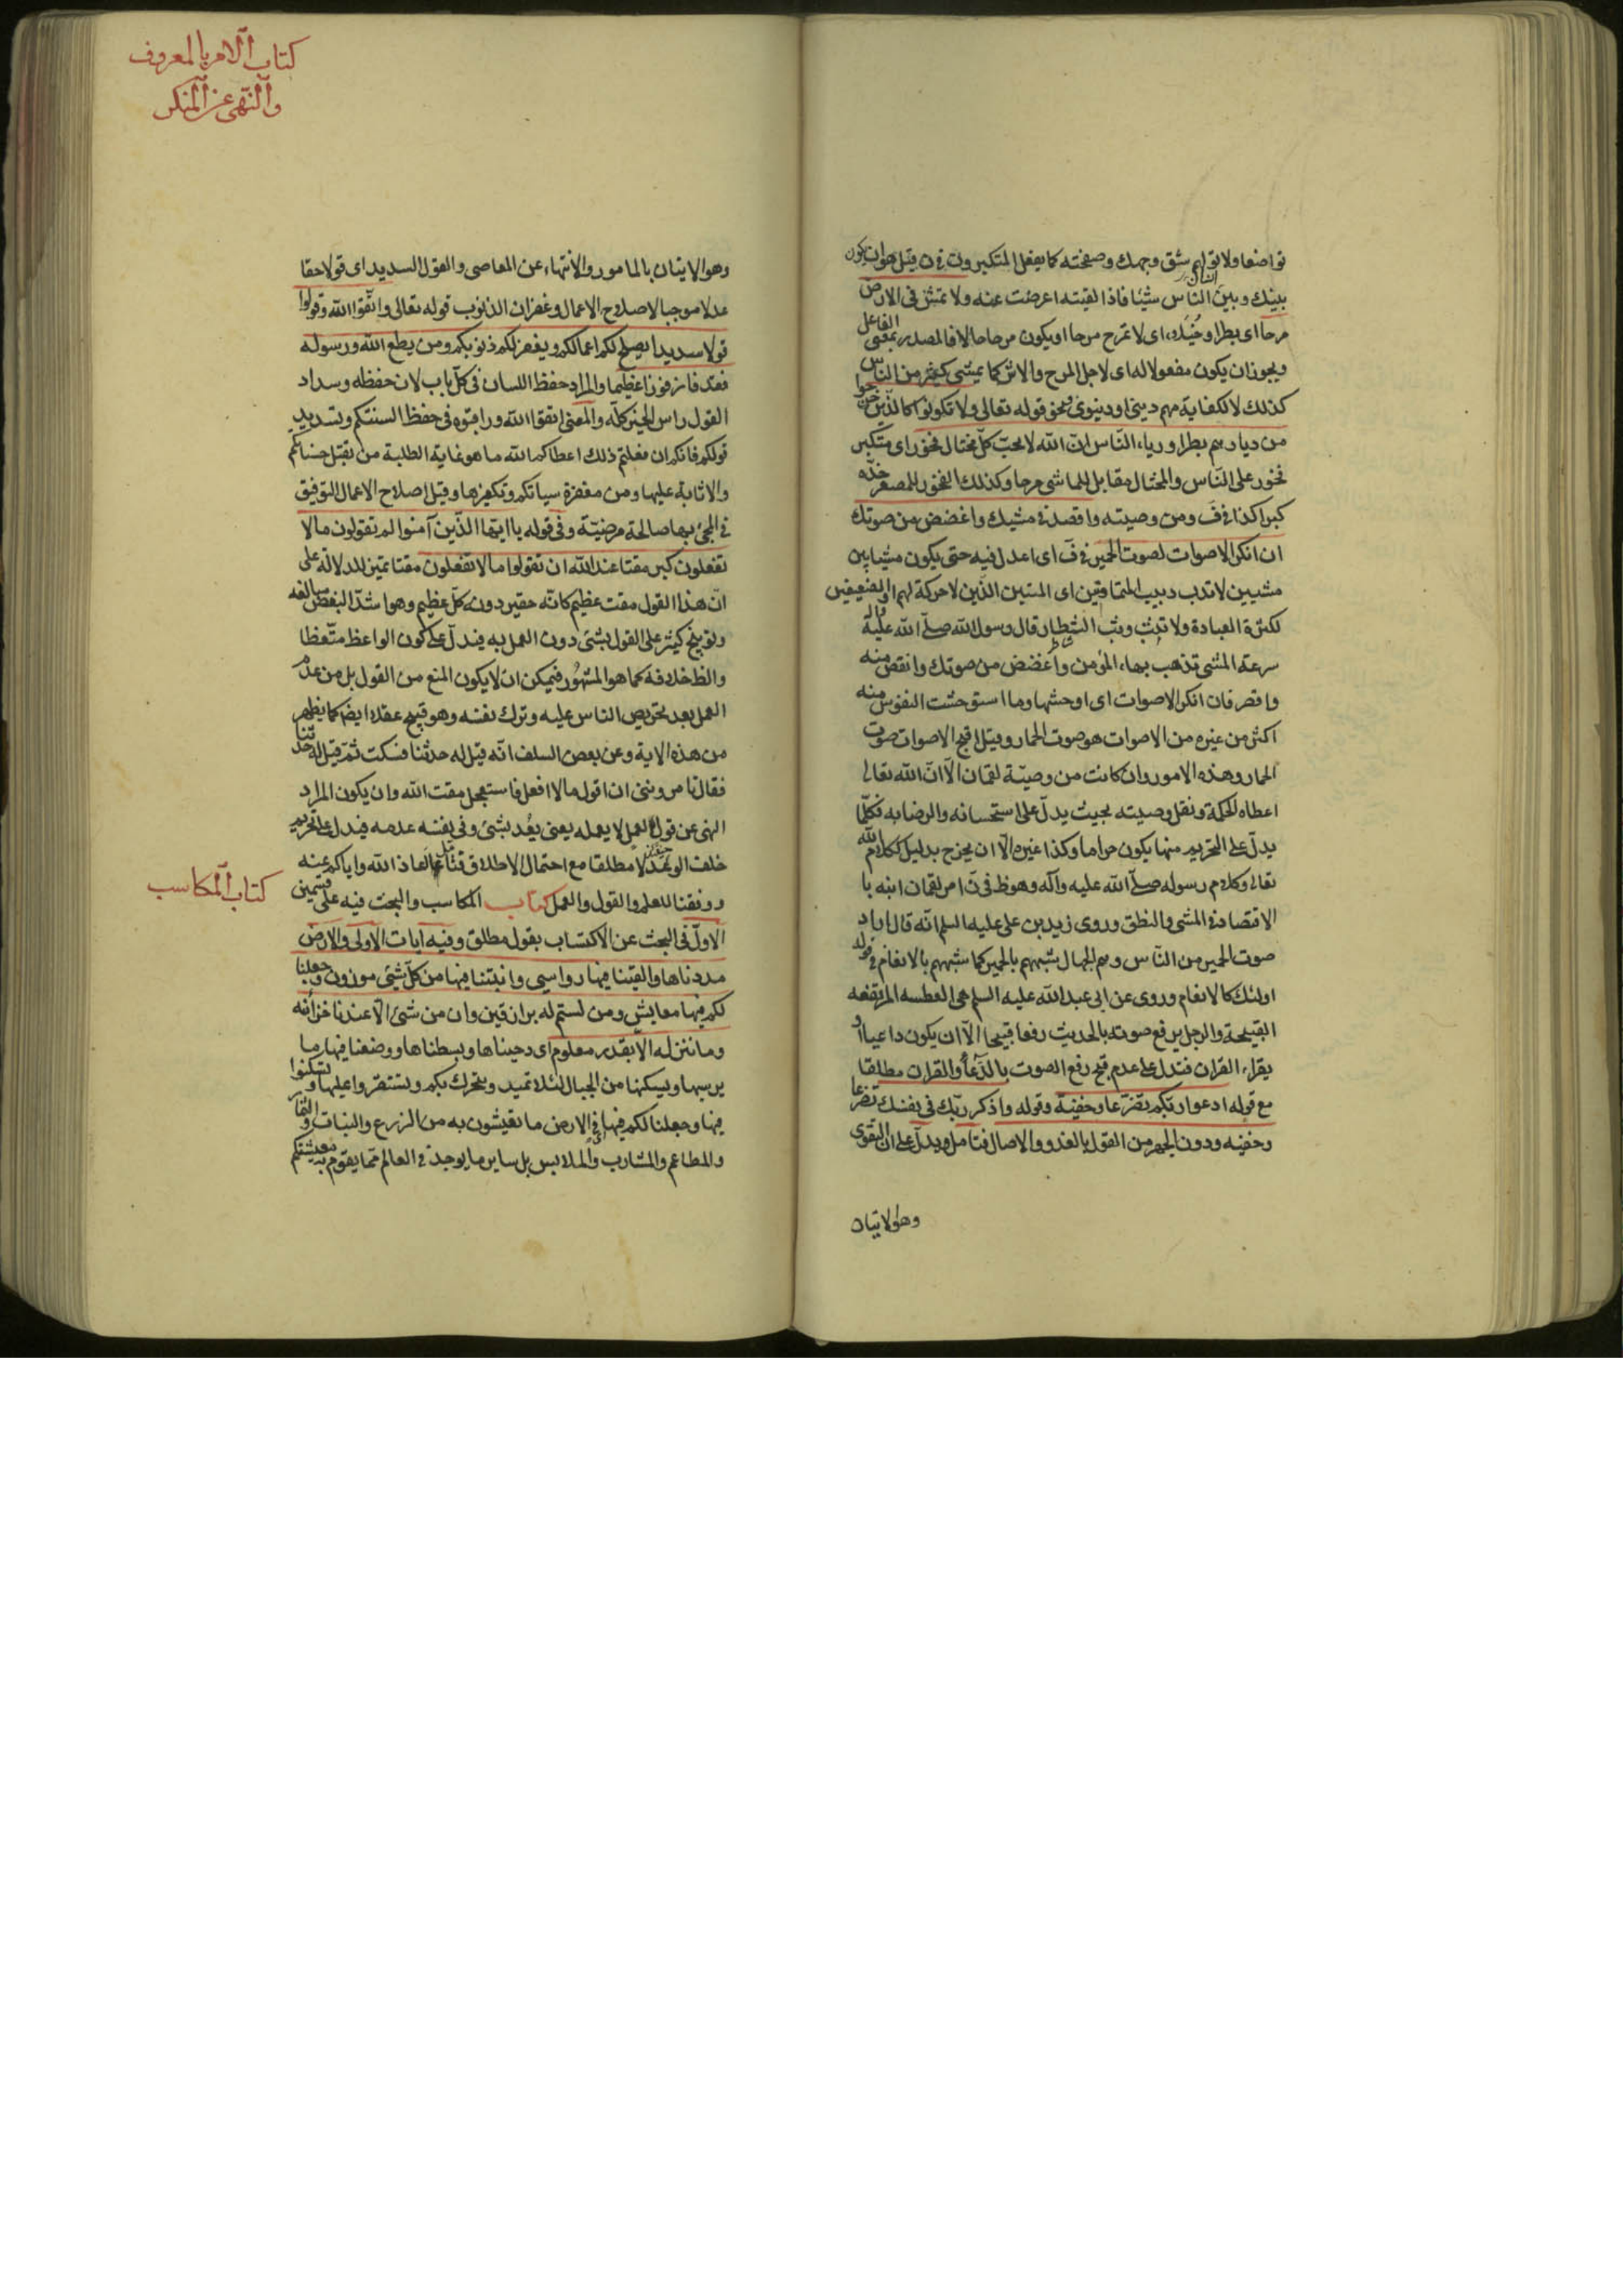 تواضعا ولا تولهم شق وجهك وصفحته كما يفعل المتكبرون في ن قيل هو ان يكون
بينك وبين الناس شيئا فاذا لقيته اعرضت عنه ولا تمش في الارض
مرحا اى بطرا وخيلاء اى لا تمرح مرحا او يكون مرحا حالا فالمصدر بمعنى الفاعل
ويجوز ان يكون مفعولا له اى لاجل المرح والاشر كما يمشى كثير من الناس
كذلك لا لكفاية مهم دينى او دنيوى ونحو قوله تعالى ولا تكونوا كالذين خرجوا
من ديارهم بطرا ورياء الناس ان الله لا يحب كل مختال فخور اى متكبر
فخور على الناس والمختال مقابل للماشى مرحا وكذلك الفخور للمصعر خده
كبرا كذا في ف ومن وصيته واقصد في مشيك واغضض من صوتك
ان انكر الاصوات لصوت الحمير في ف اى اعدل فيه حتى يكون مشيا بين
مشيين لا تدب دبيب المتماوتين اى الميتين الذين لا حركة لهم او الضعيفين
لكثرة العبادة ولا تثب وثب الشطار قال رسول الله صلى الله عليه واله
سرعة المشى تذهب بهاء المؤمن واغضض من صوتك وانقص منه
واقصر فان انكر الاصوات اى اوحشها وما استوحشت النفوس منه
اكثر من غيره من الاصوات هو صوت الحمار وقيل اقبح الاصوات صوت
الحمار وهذه الامور وان كانت من وصية لقمان الا ان الله تعالى
اعطاه الحكمة ونقل وصيته بحيث يدل على استحسانه والرضا به فكلما
يدل على التحريم منها يكون حراما وكذا غيره الا ان يخرج بدليل ككلام الله
تعالى وكلام رسوله صلى الله عليه وآله وهو ظ في ن امر لقمان ابنه با
الاقتصاد في المشى والنطق وروى زيد بن على عليه السلم انه قال اراد
صوت الحمير من الناس وهم الجهال شبههم بالحمير كما شبههم بالانعام في قوله
اولئك كالانعام وروى عن ابى عبد الله عليه السلم هى العطسه المرتفعه
القبيحة والرجل يرفع صوته بالحديث رفعا قبيحا الا ان يكون داعيا او
يقراء القران فتدل على عدم قبح رفع الصوت بالدعاء والقران مطلقا
مع قوله ادعوا ربكم تضرعا وخفية وقوله واذكر ربك في نفسك تضرعا
وخفيه ودون الجهر من القول بالغدو والاصال فتامل ويدل على ان التقوى
وهو الاتيان
كتاب الامر بالمعروف
والنهى عن المنكر
وهو الاتيان بالمامور والانتهاء عن المعاصى والقول السديد اى قولا حقا
عدلا موجب الاصلاح الاعمال وغفران الذنوب قوله تعالى واتقوا الله وقولوا
قولا سديدا يصلح لكم اعمالكم ويغفر لكم ذنوبكم ومن يطع الله ورسوله
فقد فاز فوزا عظيما والمراد حفظ اللسان في كل باب لان حفظه وسداد
القول راس الخير كله والمعنى اتقوا الله وراقبوه في حفظ السنتكم وتسديد
قولكم فانكم ان فعلتم ذلك اعطاكم الله ما هو غاية الطلبة من تقبل حسناتكم
والاثابة عليها ومن مغفرة سياتكم وتكفيرها وقيل اصلاح الاعمال التوفيق
في المجئ بها صالحة مرضية وفي قوله يا ايها الذين آمنوا لم تقولون ما لا
تفعلون كبر مقتا عند الله ان تقولوا ما لا تفعلون مقتا تمييز للدلالة على
ان هذا القول مقت عظيم كانه حقير دونه كل عظيم وهو اشد البغض مبالغه
وتوبيخ كثير على القول بشئ دون العمل به فيدل على كون الواعظ متعظا
والظ خلافه كما هو المشهور فيمكن ان لا يكون المنع من القول بل من عدم
العمل بعد تحريص الناس عليه وترك نفسه وهو قبيح عقلا ايضا كما يظهر
من هذه الاية وعن بعض السلف انه قيل له حدثنا فسكت ثم قيل له حدثنا
فقال تامروننى ان اقول ما لا افعل فاستعجل مقت الله وان يكون المراد
النهى عن قول العمل لا يعمله يعنى يعد بشئ وفي نفسه عدمه فيدل على تحريم
خلف الوعد لا مطلقا مع احتمال الاطلاق فتامل اعاذنا الله واياكم عنه
ووفقنا للعلم والقول والعمل كتاب المكاسب والبحث فيه على قسمين
كتاب المكاسب
الاول في البحث عن الاكتساب بقول مطلق وفيه ايات الاولى والارض
مددناها والقينا فيها رواسي وانبتنا فيها من كل شئ موزون وجعلنا
لكم فيها معايش ومن لستم له برازقين وان من شئ الا عندنا خزائنه
وما ننزله الا بقدر معلوم اى دحيناها وبسطناها ووضعنا فيها ما
يرسيها ويسكنها من الجبال لئلا تميد وتتحرك بكم وتستقروا عليها وتسكنوا
فيها وجعلنا لكم فيها اى في الارض ما تعيشون به من الزرع والنبات والثمار
والمطاعم والمشارب والملابس بل ساير ما يوجد في العالم مما يقوم به معيشتكم